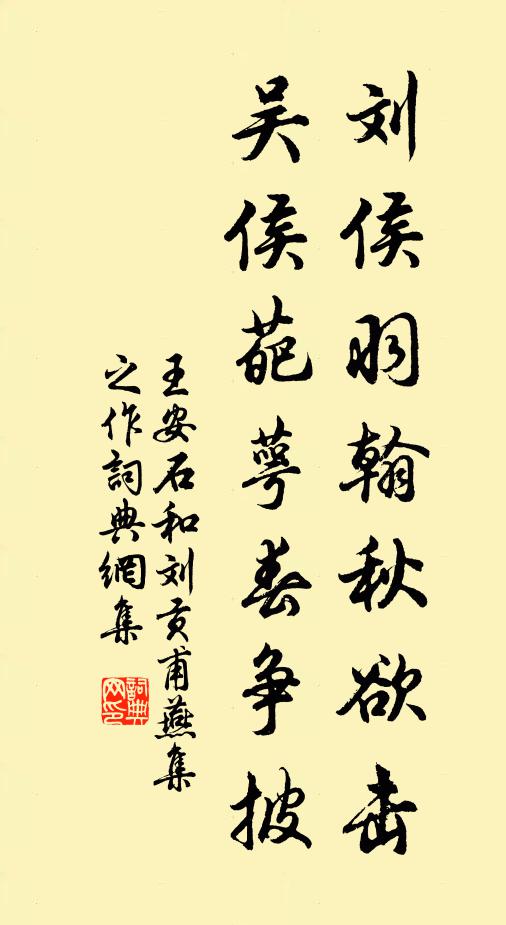 刘侯羽翰秋欲击
吴侯葩萼春争披
王安石和刘贡甫燕集
之作詞典網集
詞典网印